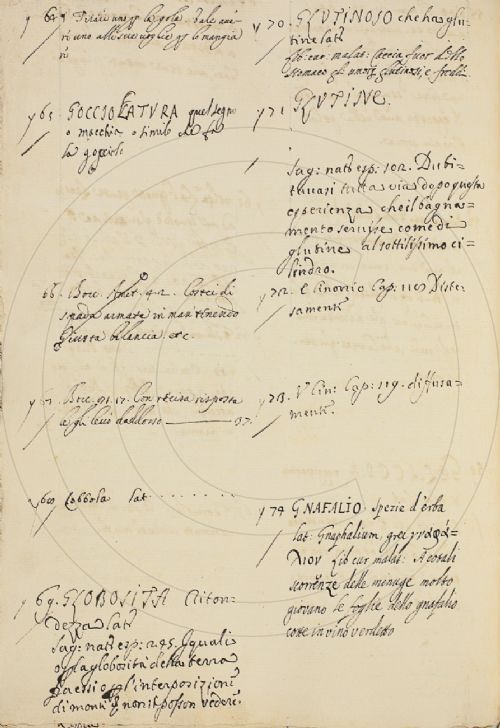 64 Tirare uno p la gola. vale aver
uno alle sue voglie p lo mangia
re
65. GOCCIOLATURA quel segno
o macchia o simile che fa
la gocciola
66. Bocc. Amet. 92. Costei di
spada armata in man tenendo
giusta bilancia etc.
67. Bocc. 91. 17. Con recisa risposta
a gli levò daddosso 37.
68 Gobbola lat.
69. GLOBOSITÀ Riton-
dezza lat.
Sag: nat: esp: 245. I quali
o p la globosità della terra
p l'interposizioni
di monti non si posson vedere.
70. GLUTINOSO che ha glu-
tine lat.
lib: cur: malat: Caccia fuor dello
stomaco gl' umori glutinosi, e fradici
71. GLUTINE.
Sag: nat: esp: 102. Dubi-
tavasi tutta via dopo questa
esperienza che il bagna-
mento servisse come di
glutine al sottilissimo ci-
lindro.
72. Cap: 110 Diste-
samente
73. V Cin: Cap: 119. diffusa-
mente.
74 GNAFALIO spezie d'erba
lat: Gnaphalium grec γναφά-
λιον lib cur malat: A cotali
scorrenze delle menuge molto
giovano le foglie dello gnafalio
cotte in vino verdetto